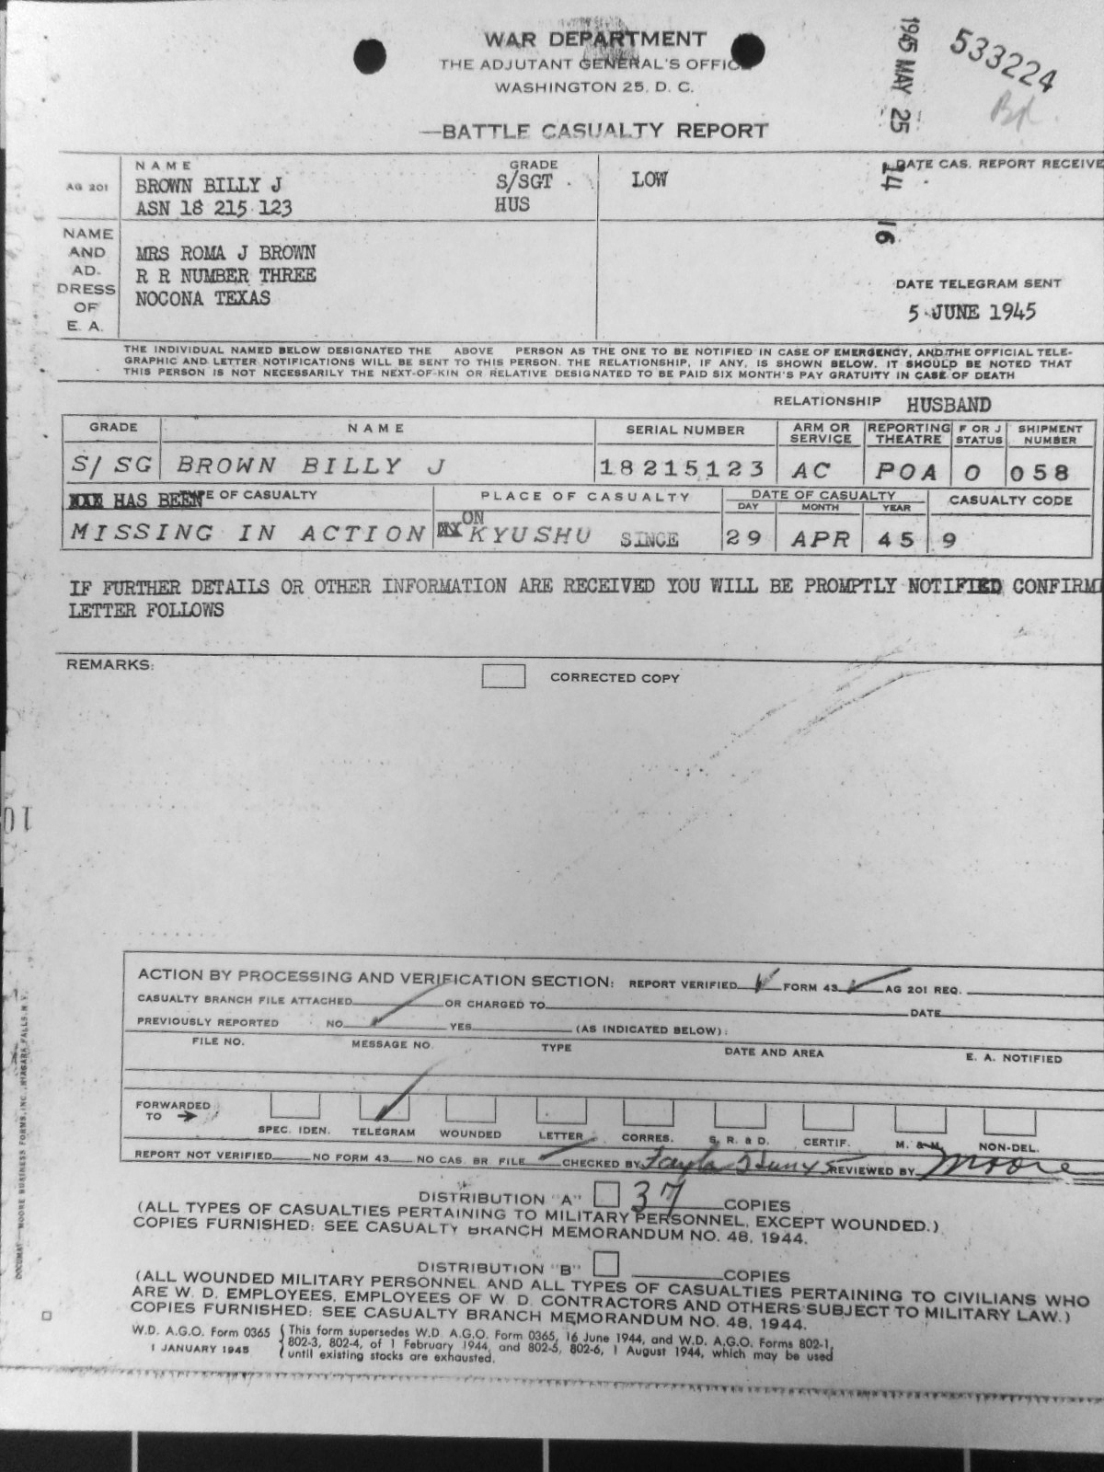 WAR DEPARTMENT
THE ADJUTANT GENERAL'S OFFIC
WASHINGTON 25, D. C.
1945 MAY 25
14 16
533224
—BATTLE CASUALTY REPORT
AG 201
NAME
BROWN BILLY J
ASN 18 215 123
GRADE
S/SGT
HUS
LOW
DATE CAS. REPORT RECEIVE
NAME
AND
AD-
DRESS
OF
E. A.
MRS ROMA J BROWN
R R NUMBER THREE
NOCONA TEXAS
DATE TELEGRAM SENT
5 JUNE 1945
THE INDIVIDUAL NAMED BELOW DESIGNATED THE ABOVE PERSON AS THE ONE TO BE NOTIFIED IN CASE OF EMERGENCY, AND THE OFFICIAL TELE-
GRAPHIC AND LETTER NOTIFICATIONS WILL BE SENT TO THIS PERSON. THE RELATIONSHIP, IF ANY, IS SHOWN BELOW. IT SHOULD BE NOTED THAT
THIS PERSON IS NOT NECESSARILY THE NEXT-OF-KIN OR RELATIVE DESIGNATED TO BE PAID SIX MONTH'S PAY GRATUITY IN CASE OF DEATH
RELATIONSHIP HUSBAND
GRADE NAME SERIAL NUMBER ARM OR SERVICE REPORTING THEATRE F OR J STATUS SHIPMENT NUMBER
S/SG BROWN BILLY J 18215123 AC POA O 058
HAS BEEN PE OF CASUALTY PLACE OF CASUALTY DATE OF CASUALTY DAY MONTH YEAR CASUALTY CODE
MISSING IN ACTION ON KYUSHU SINCE 29 APR 45 9
IF FURTHER DETAILS OR OTHER INFORMATION ARE RECEIVED YOU WILL BE PROMPTLY NOTIFIED CONFIRM
LETTER FOLLOWS
REMARKS:
CORRECTED COPY
ACTION BY PROCESSING AND VERIFICATION SECTION: REPORT VERIFIED FORM 43 AG 201 REQ.
CASUALTY BRANCH FILE ATTACHED OR CHARGED TO DATE
PREVIOUSLY REPORTED NO YES (AS INDICATED BELOW):
FILE NO. MESSAGE NO. TYPE DATE AND AREA E. A. NOTIFIED
FORWARDED
TO →
SPEC. IDEN. TELEGRAM WOUNDED LETTER CORRES. S. R. & D. CERTIF. M. & M. NON-DEL.
REPORT NOT VERIFIED NO FORM 43 NO CAS. BR. FILE CHECKED BY REVIEWED BY Moore
DISTRIBUTION "A" 37 COPIES
(ALL TYPES OF CASUALTIES PERTAINING TO MILITARY PERSONNEL, EXCEPT WOUNDED.)
COPIES FURNISHED: SEE CASUALTY BRANCH MEMORANDUM NO. 48, 1944.
DISTRIBUTION "B" COPIES
(ALL WOUNDED MILITARY PERSONNEL AND ALL TYPES OF CASUALTIES PERTAINING TO CIVILIANS WHO
ARE W. D. EMPLOYEES, EMPLOYEES OF W. D. CONTRACTORS AND OTHERS SUBJECT TO MILITARY LAW.)
COPIES FURNISHED: SEE CASUALTY BRANCH MEMORANDUM NO. 48, 1944.
W.D. A.G.O. Form 0365
1 JANUARY 1945
This form supersedes W.D. A.G.O. Form 0365, 16 June 1944, and W.D. A.G.O. Forms 802-1,
802-3, 802-4, of 1 February 1944, and 802-5, 802-6, 1 August 1944, which may be used
until existing stocks are exhausted.
MOORE BUSINESS FORMS, INC., NIAGARA FALLS, N.Y.